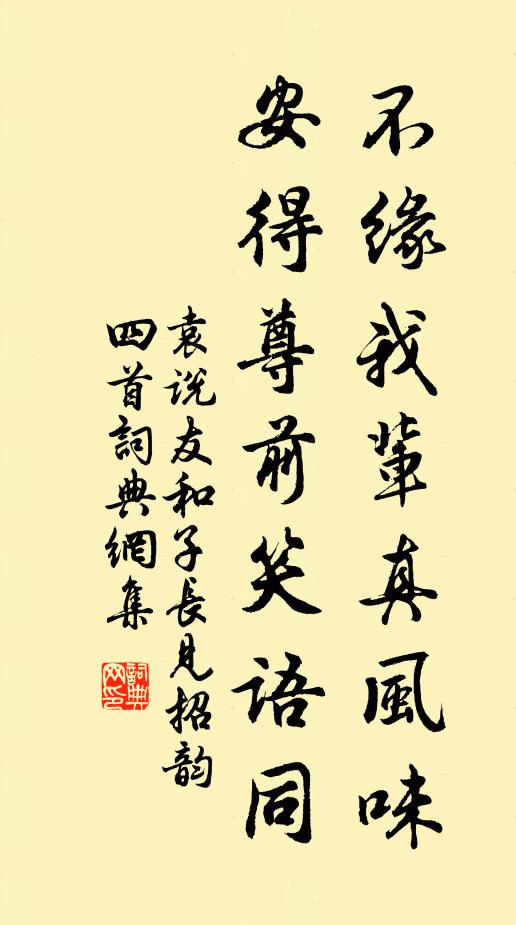 不緣我輩真風味
安得尊前笑語同
袁說友和子長見招韵
四首詞典網集
詞典网印